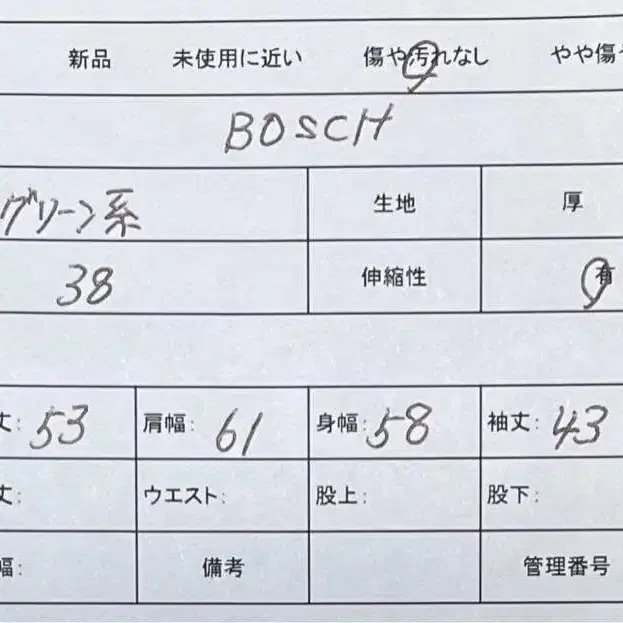 新品 未使用に近い 傷や汚れなし やや傷や
BOSCH
グリーン系 生地 厚
38 伸縮性 有
丈: 53 肩幅: 61 身幅: 58 袖丈: 43
丈: ウエスト: 股上: 股下:
幅: 備考 管理番号